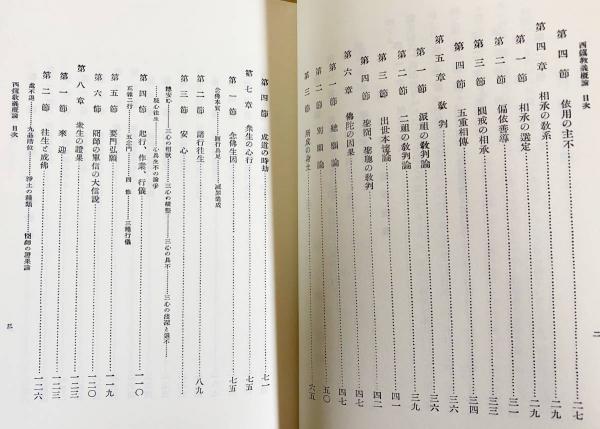 西鎭教義概論 目次
第四節 依用の主不 二七
第四章 相承の教系 二九
第一節 相承の選定 二九
第二節 偏依善導 三一
第三節 圓戒の相承 三三
第四節 五重相傳 三四
第五章 教判 三六
第一節 派祖の教判論 三六
第二節 二祖の教判論 三九
第三節 出世本懷論 四一
第四節 聖冏、聖聰の教判 四二
第六章 佛陀の因果 四七
第一節 總願論 四七
第二節 別願論 五〇
第三節 所成の身土 六五
二
第四節 成道の時劫 七一
第七章 衆生の心行 七五
第一節 念佛生因 七五
第二節 諸行往生 八九
第三節 安心
總安心
第四節 起行、作業、行儀 一一〇
五種二行 五念門 四修 三種行儀
第五節 要門弘願 一一九
第六節 冏師の單信の大信說 一二〇
第八章 衆生の證果 一二三
第一節 來迎 一二三
第二節 往生と成佛 一二六
處不退 九品階位 淨土の種類 冏師の證果論
西鎭教義概論 目次
三